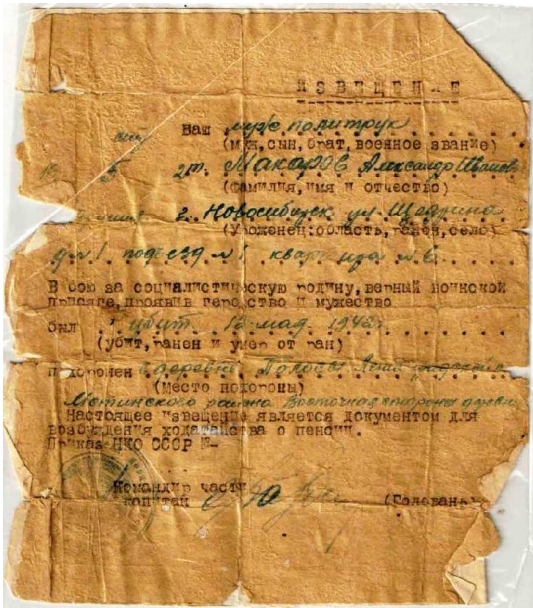 ИЗВЕЩЕНИЕ
Ваш муж политрук
(муж, сын, брат, военное звание)
Макаров Александр
(фамилия, имя и отчество)
г. Новосибирск ул. Щедрина
(Уроженец: область, район, село)
д. №1 подъезд №1 квартира №6.
В бою за социалистическую родину, верный воинской
присяге, проявив геройство и мужество
был убит мая 1942
(убит, ранен и умер от ран)
похоронен в деревне
(Место похороны)
района Восточная сторона
Настоящее извещение является документом для
возбуждения ходатайства о пенсии.
Приказ НКО СССР №-
Командир части
капитан